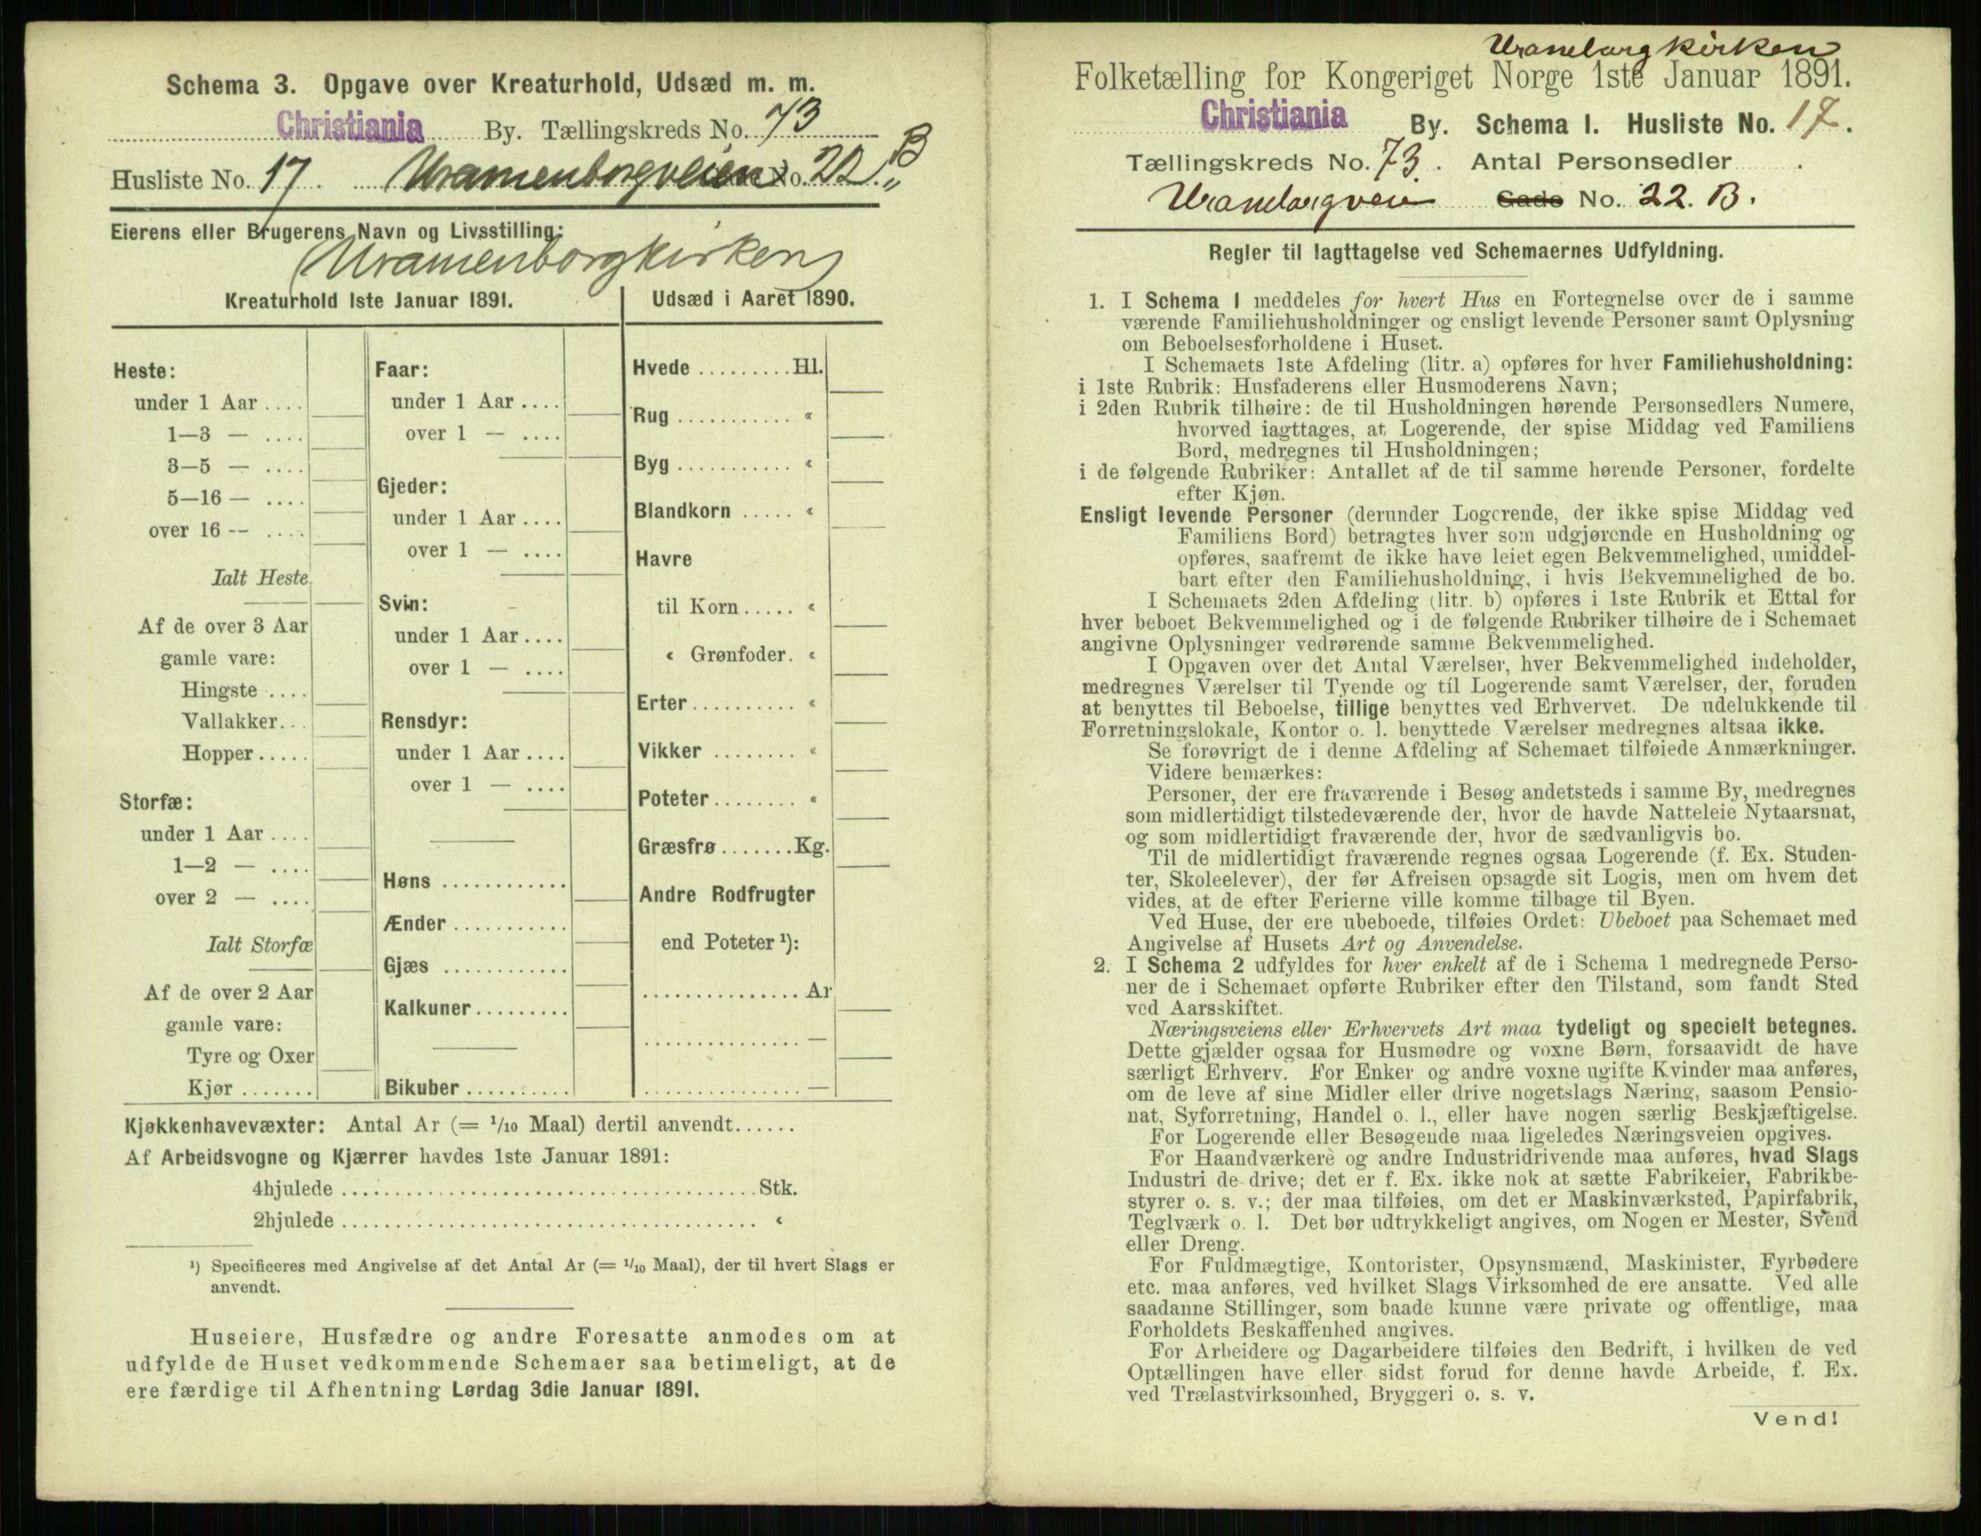 Schema 3. Opgave over Kreaturhold, Udsæd m. m.
Christiania By. Tællingskreds No. 73
Husliste No. 17 Uranienborgveien No. 22 B
Eierens eller Brugerens Navn og Livsstilling:
Uranienborgkirken
Kreaturhold 1ste Januar 1891.
Heste:
under 1 Aar....
1—3 — ....
3—5 — ....
5—16 — ....
over 16 -- ....
Ialt Heste
Af de over 3 Aar
gamle vare:
Hingste ....
Vallakker...
Hopper.....
Storfæ:
under 1 Aar....
1—2 — ....
over 2 — ....
Ialt Storfæ
Af de over 2 Aar
gamle vare:
Tyre og Oxer
Kjør.......
Faar:
under 1 Aar....
over 1 — ....
Gjeder:
under 1 Aar....
over 1 — ....
Svin:
under 1 Aar....
over 1 — ....
Rensdyr:
under 1 Aar....
over 1 — ....
Høns ............
Ænder ...........
Gjæs ............
Kalkuner.........
Bikuber ..........
Udsæd i Aaret 1890.
Hvede .........Hl.
Rug ............ «
Byg ............ «
Blandkorn ..... «
Havre
til Korn..... «
« Grønfoder. «
Erter.......... «
Vikker ........ «
Poteter........ «
Græsfrø.......Kg.
Andre Rodfrugter
end Poteter ¹):
............... Ar
............... —
............... —
Kjøkkenhavevæxter: Antal Ar (= 1/10 Maal) dertil anvendt......
Af Arbeidsvogne og Kjærrer havdes 1ste Januar 1891:
4hjulede ........................................ Stk.
2hjulede ........................................ «
¹) Specificeres med Angivelse af det Antal Ar (= 1/10 Maal), der til hvert Slags er
anvendt.
Huseiere, Husfædre og andre Foresatte anmodes om at
udfylde de Huset vedkommende Schemaer saa betimeligt, at de
ere færdige til Afhentning Lørdag 3die Januar 1891.
Uranieborgkirken
Folketælling for Kongeriget Norge 1ste Januar 1891.
Christiania By. Schema I. Husliste No. 17.
Tællingskreds No. 73. Antal Personsedler .
Uranieborgvein Gade No. 22. B.
Regler til Iagttagelse ved Schemaernes Udfyldning.
1. I Schema 1 meddeles for hvert Hus en Fortegnelse over de i samme
værende Familiehusholdninger og ensligt levende Personer samt Oplysning
om Beboelsesforholdene i Huset.
I Schemaets 1ste Afdeling (litr. a) opføres for hver Familiehusholdning:
i 1ste Rubrik: Husfaderens eller Husmoderens Navn;
i 2den Rubrik tilhøire: de til Husholdningen hørende Personsedlers Numere,
hvorved iagttages, at Logerende, der spise Middag ved Familiens
Bord, medregnes til Husholdningen;
i de følgende Rubriker: Antallet af de til samme hørende Personer, fordelte
efter Kjøn.
Ensligt levende Personer (derunder Logerende, der ikke spise Middag ved
Familiens Bord) betragtes hver som udgjørende en Husholdning og
opføres, saafremt de ikke have leiet egen Bekvemmelighed, umiddel-
bart efter den Familiehusholdning, i hvis Bekvemmelighed de bo.
I Schemaets 2den Afdeling (litr. b) opføres i 1ste Rubrik et Ettal for
hver beboet Bekvemmelighed og i de følgende Rubriker tilhøire de i Schemaet
angivne Oplysninger vedrørende samme Bekvemmelighed.
I Opgaven over det Antal Værelser, hver Bekvemmelighed indeholder,
medregnes Værelser til Tyende og til Logerende samt Værelser, der, foruden
at benyttes til Beboelse, tillige benyttes ved Erhvervet. De udelukkende til
Forretningslokale, Kontor o. l. benyttede Værelser medregnes altsaa ikke.
Se forøvrigt de i denne Afdeling af Schemaet tilføiede Anmærkninger.
Videre bemærkes:
Personer, der ere fraværende i Besøg andetsteds i samme By, medregnes
som midlertidigt tilstedeværende der, hvor de havde Natteleie Nytaarsnat,
og som midlertidigt fraværende der, hvor de sædvanligvis bo.
Til de midlertidigt fraværende regnes ogsaa Logerende (f. Ex. Studen-
ter, Skoleelever), der før Afreisen opsagde sit Logis, men om hvem det
vides, at de efter Ferierne ville komme tilbage til Byen.
Ved Huse, der ere ubeboede, tilføies Ordet: Ubeboet paa Schemaet med
Angivelse af Husets Art og Anvendelse.
2. I Schema 2 udfyldes for hver enkelt af de i Schema 1 medregnede Perso-
ner de i Schemaet opførte Rubriker efter den Tilstand, som fandt Sted
ved Aarsskiftet.
Næringsveiens eller Erhvervets Art maa tydeligt og specielt betegnes.
Dette gjælder ogsaa for Husmødre og voxne Børn, forsaavidt de have
særligt Erhverv. For Enker og andre voxne ugifte Kvinder maa anføres,
om de leve af sine Midler eller drive nogetslags Næring, saasom Pensio-
nat, Syforretning, Handel o. l., eller have nogen særlig Beskjæftigelse.
For Logerende eller Besøgende maa ligeledes Næringsveien opgives.
For Haandværkere og andre Industridrivende maa anføres, hvad Slags
Industri de drive; det er f. Ex. ikke nok at sætte Fabrikeier, Fabrikbe-
styrer o. s. v.; der maa tilføies, om det er Maskinværksted, Papirfabrik,
Teglværk o. l. Det bør udtrykkeligt angives, om Nogen er Mester, Svend
eller Dreng.
For Fuldmægtige, Kontorister, Opsynsmænd, Maskinister, Fyrbødere
etc. maa anføres, ved hvilket Slags Virksomhed de ere ansatte. Ved alle
saadanne Stillinger, som baade kunne være private og offentlige, maa
Forholdets Beskaffenhed angives.
For Arbeidere og Dagarbeidere tilføies den Bedrift, i hvilken de ved
Optællingen have eller sidst forud for denne havde Arbeide, f. Ex.
ved Trælastvirksomhed, Bryggeri o. s. v.
Vend!